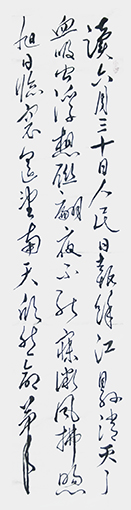 读六月三十日人民日报余江县消灭了
血吸虫浮想联翩夜不能寐微风拂煦
旭日临窗遥望南天欣然命笔